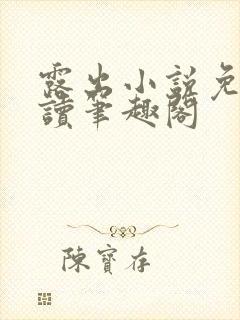 露出小説免
讀筆趣閣
陳寶存